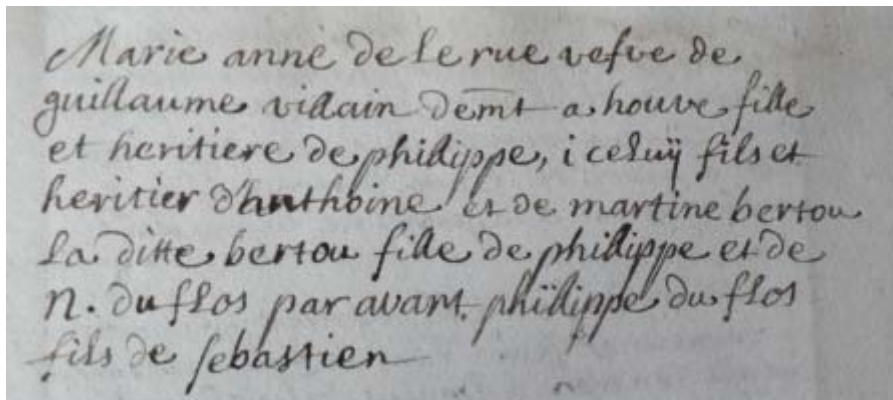 Marie anne de le rue vefve de
guillaume villain demt a houve fille
et heritiere de philippe, i celuÿ fils et
heritier d'anthoine et de martine bertou
La ditte bertou fille de philippe et de
n. du flos par avant. philippe du flos
fils de sebastien